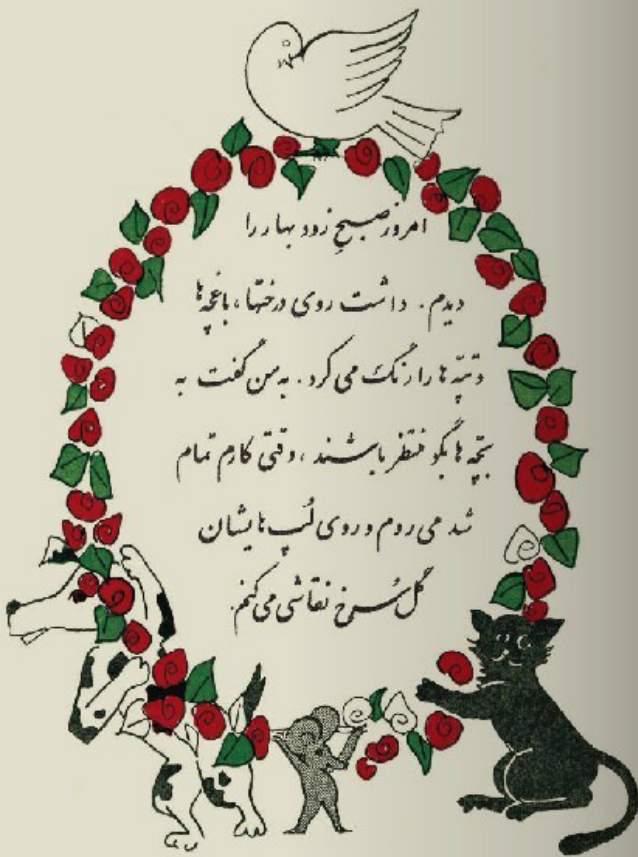 امروز صبحِ زود بهار را
دیدم. داشت روی درختها، باغچه‌ها
و تپّه‌ها را رنگ می‌کرد. به من گفت به
بچّه‌ها بگو منتظر باشند، وقتی کارم تمام
شد می‌روم و روی لُپ‌هایشان
گل سُرخ نقاشی می‌کنم.